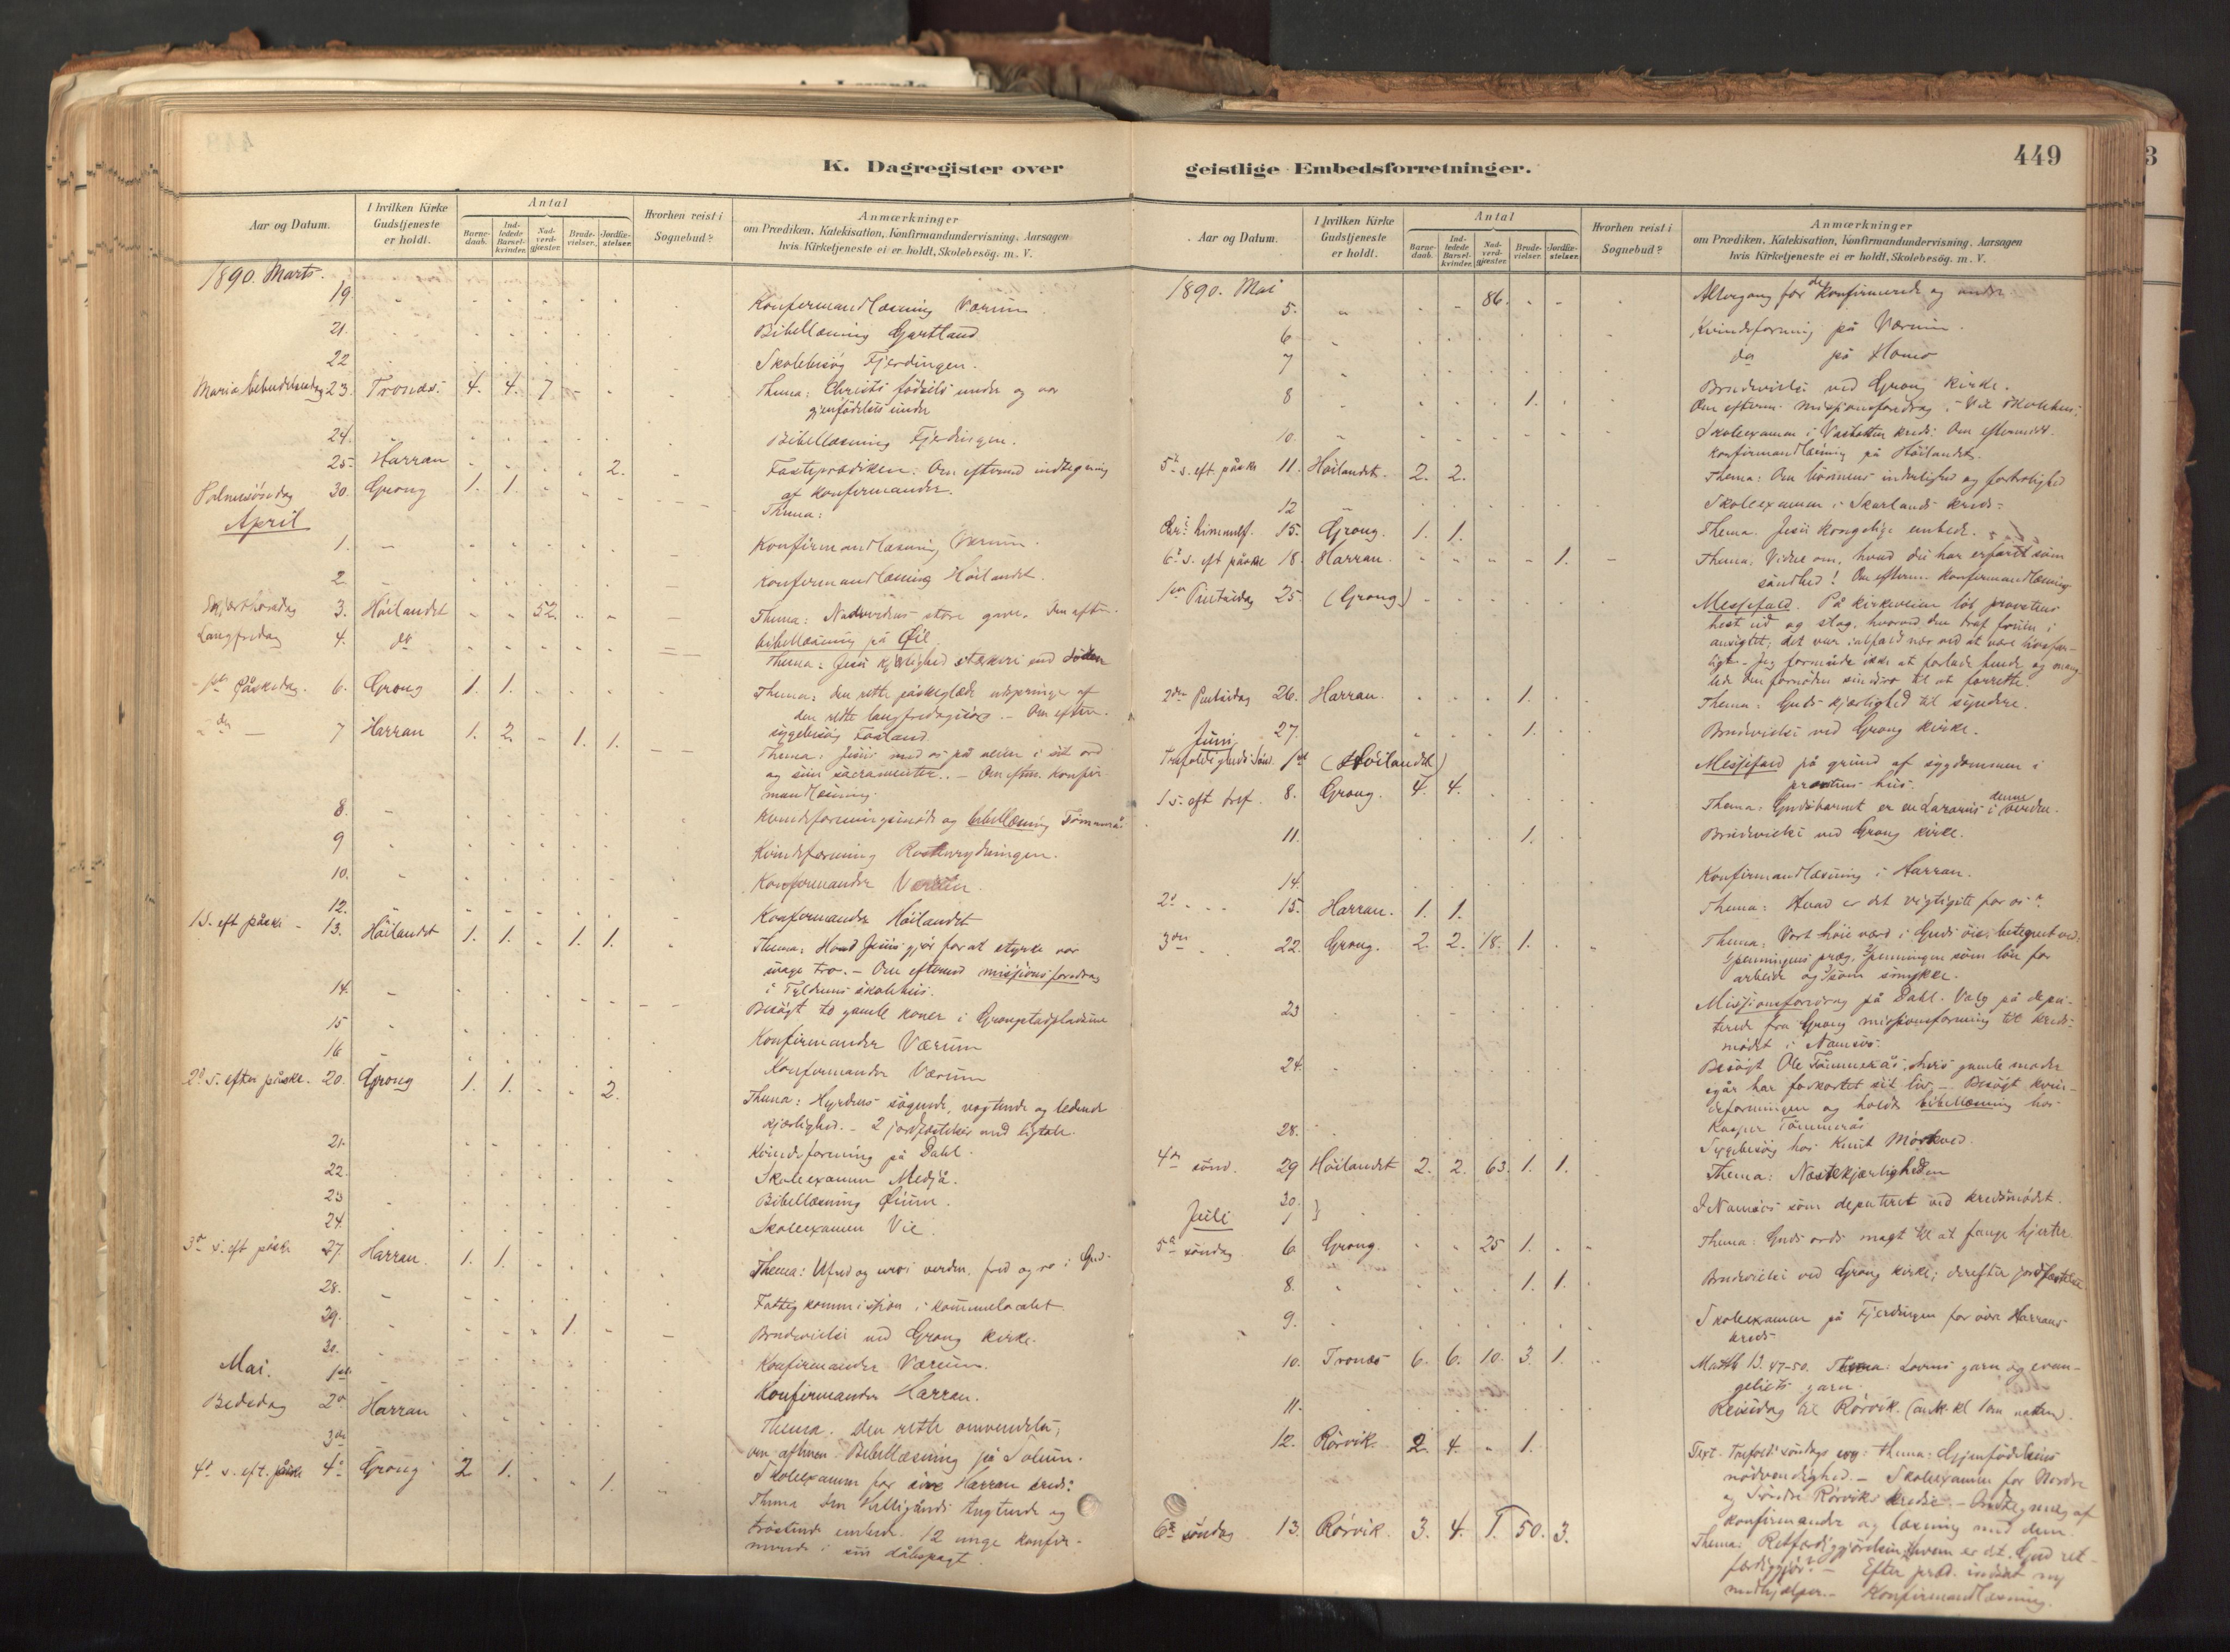 449
K. Dagregister over
geistlige Embedsforretninger.
Aar og Datum.
I hvilken Kirke Gudstjeneste er holdt.
Antal
Barne-daab.
Ind-ledede Barsel-kvinder.
Nad-verd-gjæster.
Brude-vielser.
Jordfæ-stelser.
Hvorhen reist i Sognebud?
Anmærkninger
om Prædiken, Katekisation, Konfirmandundervisning, Aarsagen
hvis Kirketjeneste ei er holdt, Skolebesög. m. V.
1890. Marts.
19. Konfirmandlæsning Værum
21. Bibellæsning Gartland
22 Skolebesög Fjerdingen.
Maria bebudelsesdag 23. Tronæs. 4. 4. 7 Thema: Christi födsels under og vor
gjenfödelses under
24. Bibellæsning Fjerdingen.
25. Harran 2. Fasteprædiken. Om efterm indtegning
af konfirmander.
Palmesöndag 30. Grong 1. 1. Thema:
April
1. Konfirmandlæsning Værum.
2. Konfirmandlæsning Höilandet.
Skjærthorsdag 3. Höilandet 52. Thema: Nadverdens store gave. Om efterm.
bibellæsning på Öie
Langfredag 4. do Thema: Jesu kjærlighed stærkere end döden
1ste Påskedag. 6. Grong 1. 1. Thema: den rette påskeglæde udspringer af
den rette langfredagssorg. - Om efterm.
sygebesög Fosland
7 Harran 1. 2. 1. 1. Thema: Jesus med os på veien i sit ord
og sine sacramenter. - Om efterm. konfir-
mandlæsning.
8. Kvindeforeningsmöde og bibellæsning Tömmerås
9 Kvindeforening
10. Konfirmander Værum.
12. Konfirmander Höilandet
1 S. eft påske 13. Höilandet 1. 1. 1. 1. Thema: Hvad Jesus gjör for at styrke vor
svage tro. - Om eftermd missionsforedrag
i skolehus.
14. Besögt to gamle koner i Grongstadpladsene
15 Konfirmander Værum
16 Konfirmander Værum
2 s. efter påske. 20. Grong 1. 1. 2. Thema: Hyrdens sögende, vogtende og ledende
kjærlighed. - 2 jordfæstelser med ligtale.
21. Kvindeforening på Dahl.
22. Skoleexamen Medjå.
23 Bibellæsning
24. Skoleexamen Vie.
3 s. eft påske 27. Harran. 1. 1. Thema: Ufred og uro i verden, fred og ro i Gud
28. Fattigkommission i kommunelocalet
29. 1. Brudevielse ved Grong kirke.
30. Konfirmander Værum.
Mai. 1ste Konfirmander Harran.
Bededag 2 Harran Thema. Den rette omvendelse,
om aftenen Bibellæsning på Solum.
3die Skoleexamen for Harran kreds.
4 s. eft. påske 4 Grong 2 1. 1. Thema Den Helligånds tugtende og
tröstende embede. 12 unge konfir-
merede i sin dåbspagt.
Aar og Datum.
I hvilken Kirke Gudstjeneste er holdt.
Antal
Barne-daab.
Ind-ledede Barsel-kvinder.
Nad-verd-gjæster.
Brude-vielser.
Jordfæ-stelser.
Hvorhen reist i Sognebud?
Anmærkninger
om Prædiken, Katekisation, Konfirmandundervisning, Aarsagen
hvis Kirketjeneste ei er holdt, Skolebesög. m. V.
1890. Mai
5. 86. Altergang for de konfirmerede og andre
6 Kvindeforening på Værum.
7 do på Homo
8 1. Brudevielse ved Grong kirke.
Om efterm. missionsforedrag i Vie skolehus.
10. Skoleexamen i kreds. Om eftermidd.
konfirmandlæsning på Höilandet.
5 s. eft påske 11. Höilandet. 2. 2. Thema: Om bönnens inderlighed og fortrolighed
12 Skoleexamen i Skarlands kreds.
Chr. himmelf. 15. Grong. 1. 1. Thema. Jesu kongelige embede.
6 s. eft påske 18. Harran. 1. Thema, Vidne om, hvad du har erfaret som
sandhed! Om efterm konfirmandlæsning
1ste Pintsedag 25 (Grong) Messefald. På kirkeveien löb provstens
hest ud og slog, hvorved den traf fruen i
ansigtet; det var ialfald nær ved at være livsfar-
ligt. - Jeg formåede ikke at forlade hende og mang-
lede den fornödne sindsro til at forrette.
2den Pintsedag 26. Harran. 1. Thema: Guds kjærlighed til syndere.
27. 1. Brudevielse ved Grong kirke.
Juni
Trefoldigheds Sönd. 1ste (Höilandet) Messefald på grund af sygdommen i
provstens hus.
1 s. eft tref. 8. Grong. 4. 4. Thema: Gudsbarnet er en Lazarus i denne verden.
11. 1. Brudevielse ved Grong kirke.
14. Konfirmandlæsning i Harran.
2 15. Harran. 1. 1. Thema: Hvad er det vigtigste for os?
3die 22. Grong. 2. 2. 18. 1. Thema: Vort höie værd i Guds öie, betegnet ved:
1/ penningens præg, 2/ penningen som lön for
arbeide og 3/ som smykke.
23 Missionsforedrag på Dahl. Valg på depu-
terede fra Grong missionsforening til kreds-
mödet i Namsos.
24. Besögt Ole Tömmerås, hvis gamle moder
igår har forkortet sit liv. - Besögt kvin-
deforeningen og holdt bibellæsning hos
Kasper Tömmerås
28. Sygebesög hos Knut Mörkved.
4de sönd. 29 Höilandet 2. 2. 63. 1. 1. Thema: Næstekjærligheden
30.
Juli 1 } I Namsos som deputeret ved kredsmödet.
5 söndag 6. Grong. 25 1. Thema: Guds ords magt til at fange hjerter.
8. 1. 1. Brudevielse ved Grong kirke; derefter jordfæstelse
9. Skoleexamen på Fjerdingen for övre Harrans
kreds
10. Tronæs 6. 6. 10. 3. 1. Matth 13. 47-50. Thema: Lovens garn og evan-
geliets garn.
11. Reisedag til Rörvik. (ank. kl 1 om natten).
12. Rörvik. 2. 4. 1. Text. Trefold. söndags evg: thema: Gjenfödelsens
nödvendighed. - Skoleexamen for Nordre
og Söndre Rörviks kredse. - Indtegning af
konfirmander og læsning med dem.
6 söndag 13. Rörvik. 3. 4. 50. 3. Thema: Retfærdiggjörelsen: hvem er det, Gud ret-
færdiggjör? - Efter præd. indsat ny
medhjælper. - Konfirmandlæsning.